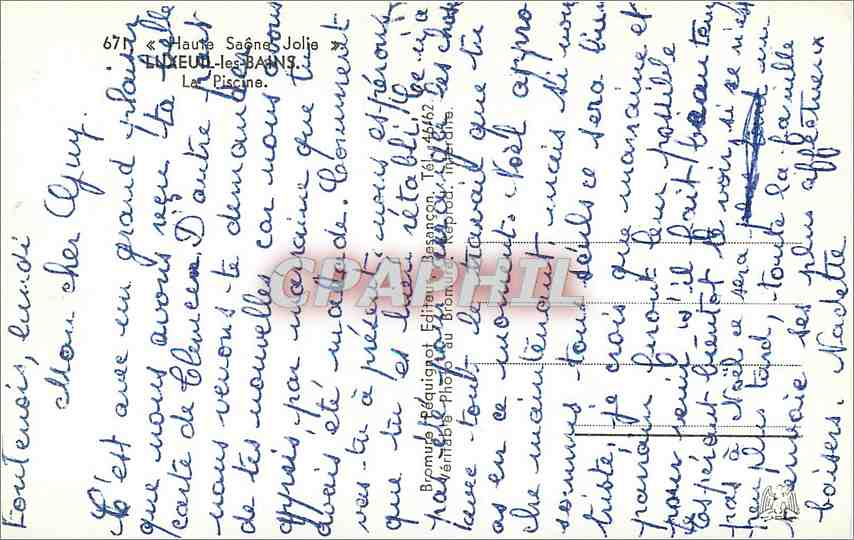 671 « Haute Saône Jolie »
LUXEUIL-les-BAINS.
La Piscine.
Bromure Péquignot Editeur, Besançon, Tél. 46/62
Véritable Photo au Bromure. Reprod. Interdite.
CPAPHIL
Fontenois, lundi
Mon cher Guy.
C'est avec un grand plaisir
que nous avons reçu ta belle
carte de Clemcen. D'autre part
nous venons te demander
de tes nouvelles car nous avons
appris par marraine que tu
avais été malade. Comment
vas-tu à présent, nous espérons
que tu es bien rétabli. Ce n'a
pas été pour arranger les choses
avec tout le travail que tu
as en ce moment. Noël appro
che maintenant, mais si nous
sommes tous seuls ce sera bien
triste, je crois que marraine et
parrain feront leur possible
pour venir s'il fait beau temps
Espérant bientôt te voir si ce n'est
pas à Noël ce sera un
peu plus tard, toute la famille
t'envoie ses plus affectueux
baisers. Nadette